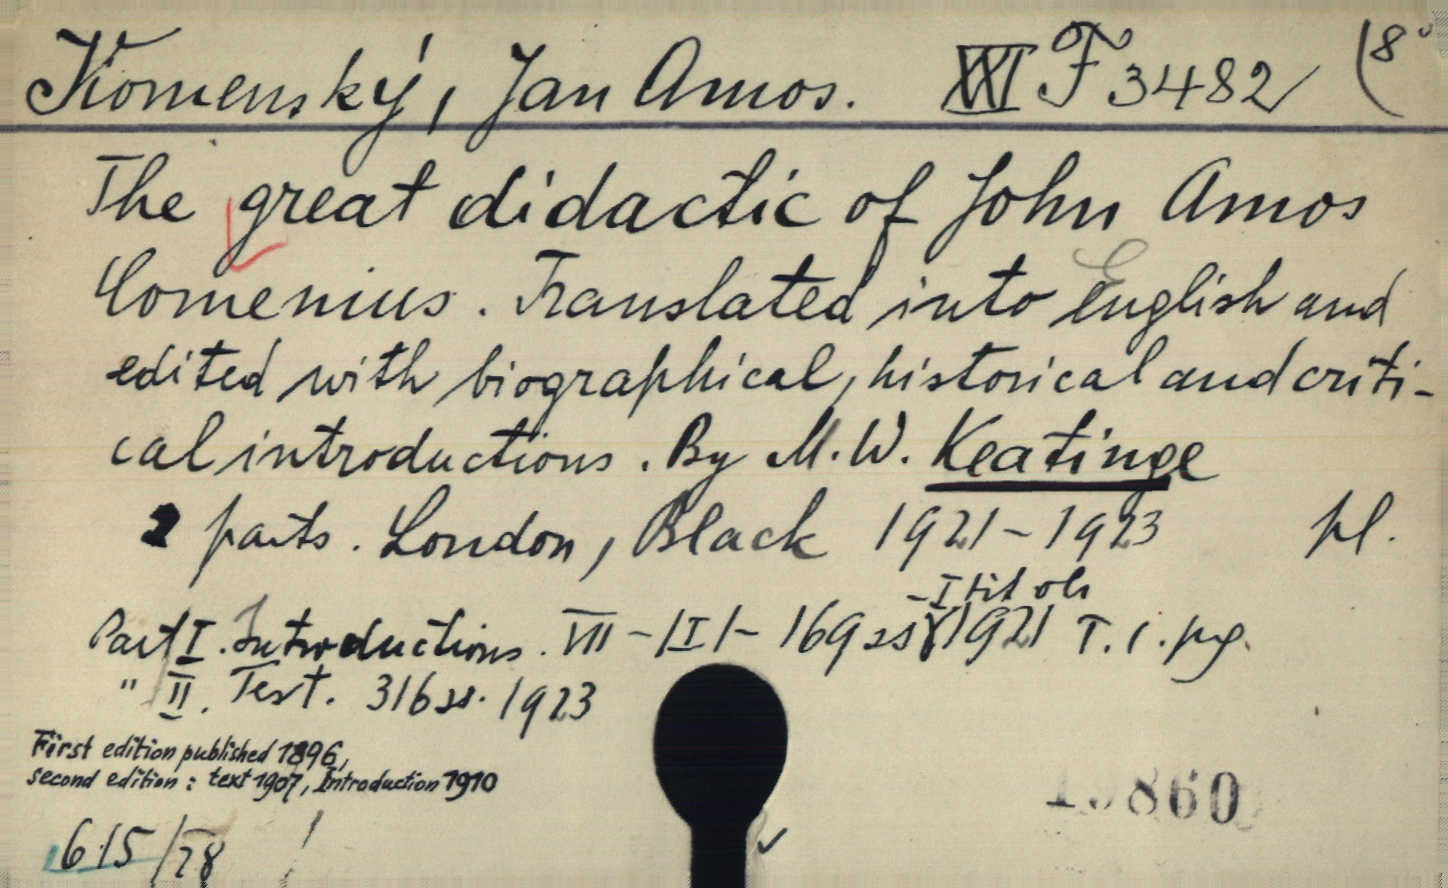 Komenský, Jan Amos. XXI F 3482 (8°
The great didactic of John Amos
Comenius. Translated into English and
edited with biographical, historical and criti-
cal introductions. By M. W. Keatinge
2 parts. London, Black 1921-1923 pl.
-I tit ob
Part I. Introductions. VII-|I|-169 ss 1921 T. 1. pg.
" II. Text. 316 ss. 1923
First edition published 1896,
second edition: text 1907, Introduction 1910
19860
615/28